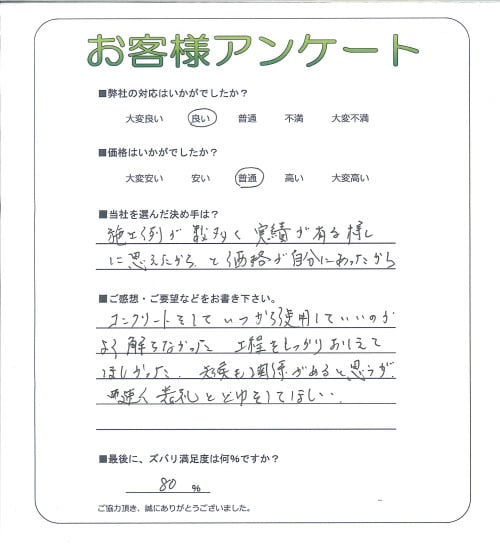 お客様アンケート
■弊社の対応はいかがでしたか？
大変良い 良い 普通 不満 大変不満
■価格はいかがでしたか？
大変安い 安い 普通 高い 大変高い
■当社を選んだ決め手は？
施工例が数多く実績が有る様し
に思えたから と価格が自分にあったから
■ご感想・ご要望などをお書き下さい。
コンクリートをして いつから使用していいのか
よく解らなかった 工程をしっかりおしえて
ほしかった. 天候も関係があると思うが.
速く表札とといをしてほしい.
■最後に、ズバリ満足度は何%ですか？
80 %
ご協力頂き、誠にありがとうございました。